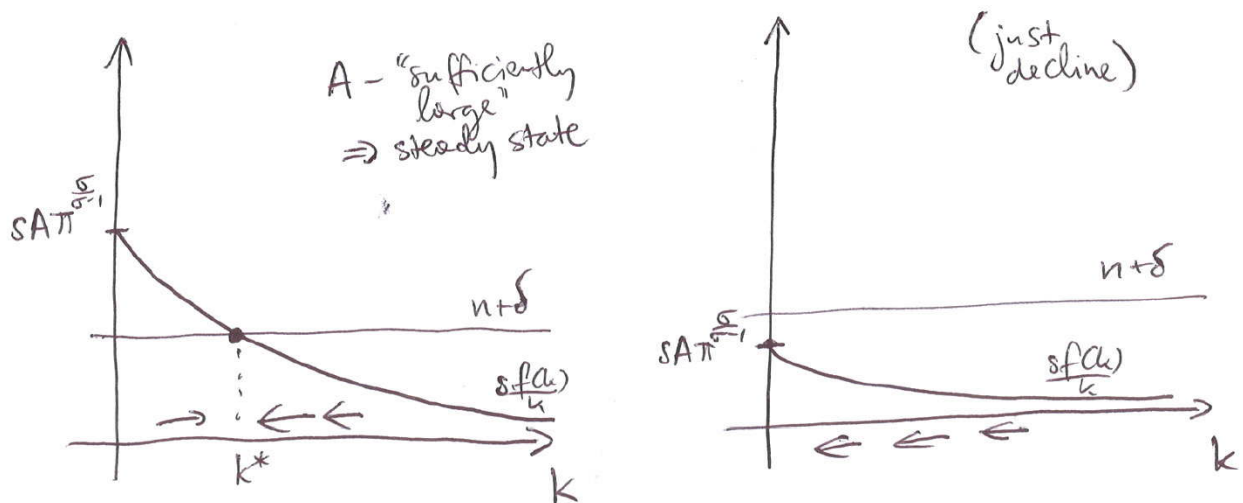 A - "sufficiently
large"
⇒ steady state
sAπ^{σ/(σ-1)}
n+δ
sf(k)/k
k*
k
(just
decline)
n+δ
sAπ^{σ/(σ-1)}
sf(k)/k
k